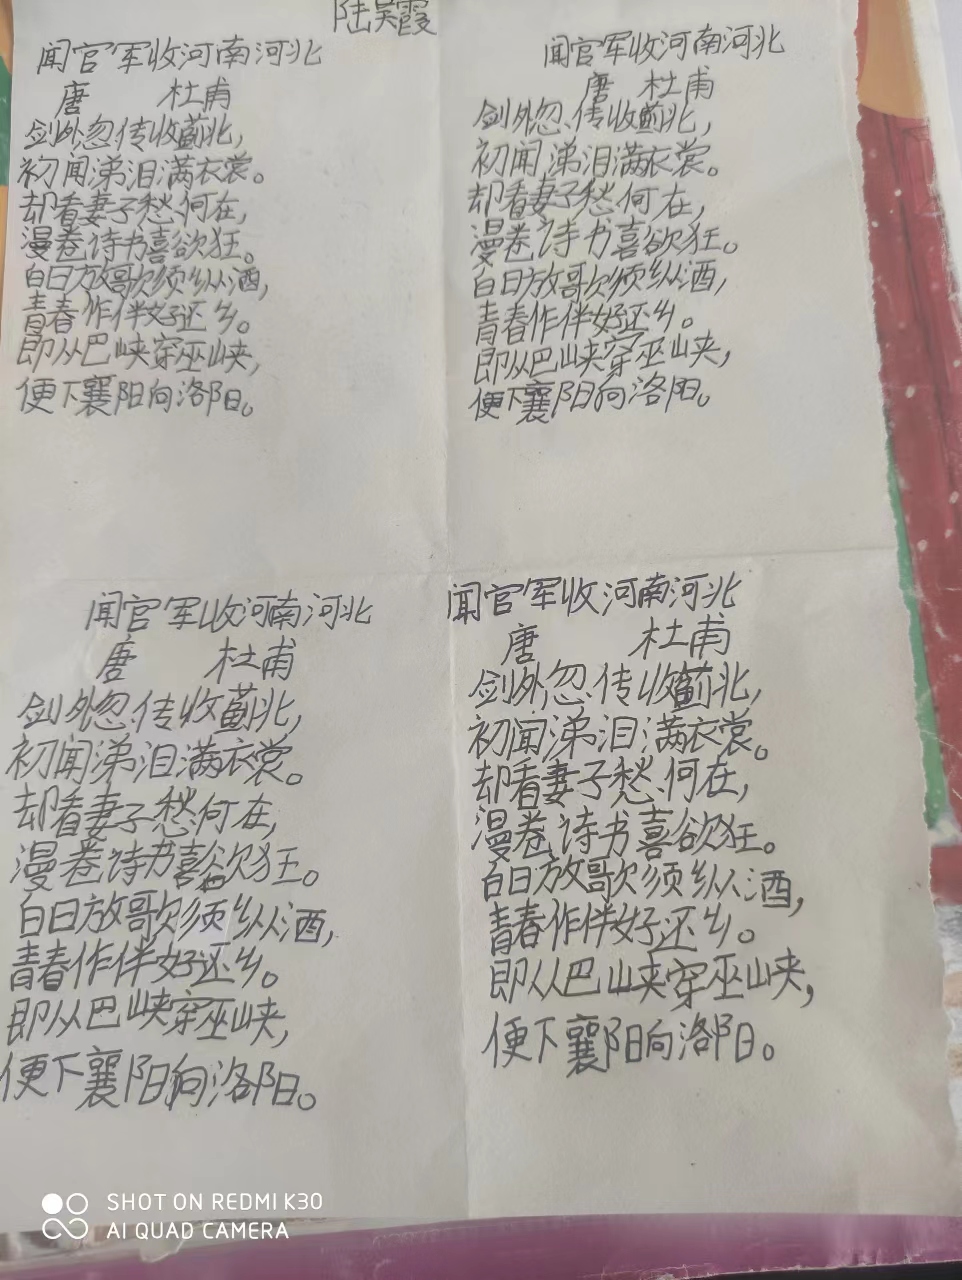 陆昊霞
闻官军收河南河北
唐 杜甫
剑外忽传收蓟北，
初闻涕泪满衣裳。
却看妻子愁何在，
漫卷诗书喜欲狂。
白日放歌须纵酒，
青春作伴好还乡。
即从巴峡穿巫峡，
便下襄阳向洛阳。
闻官军收河南河北
唐 杜甫
剑外忽传收蓟北，
初闻涕泪满衣裳。
却看妻子愁何在，
漫卷诗书喜欲狂。
白日放歌须纵酒，
青春作伴好还乡。
即从巴峡穿巫峡，
便下襄阳向洛阳。
闻官军收河南河北
唐 杜甫
剑外忽传收蓟北，
初闻涕泪满衣裳。
却看妻子愁何在，
漫卷诗书喜欲狂。
白日放歌须纵酒，
青春作伴好还乡。
即从巴峡穿巫峡，
便下襄阳向洛阳。
闻官军收河南河北
唐 杜甫
剑外忽传收蓟北，
初闻涕泪满衣裳。
却看妻子愁何在，
漫卷诗书喜欲狂。
白日放歌须纵酒，
青春作伴好还乡。
即从巴峡穿巫峡，
便下襄阳向洛阳。
SHOT ON REDMI K30
AI QUAD CAMERA